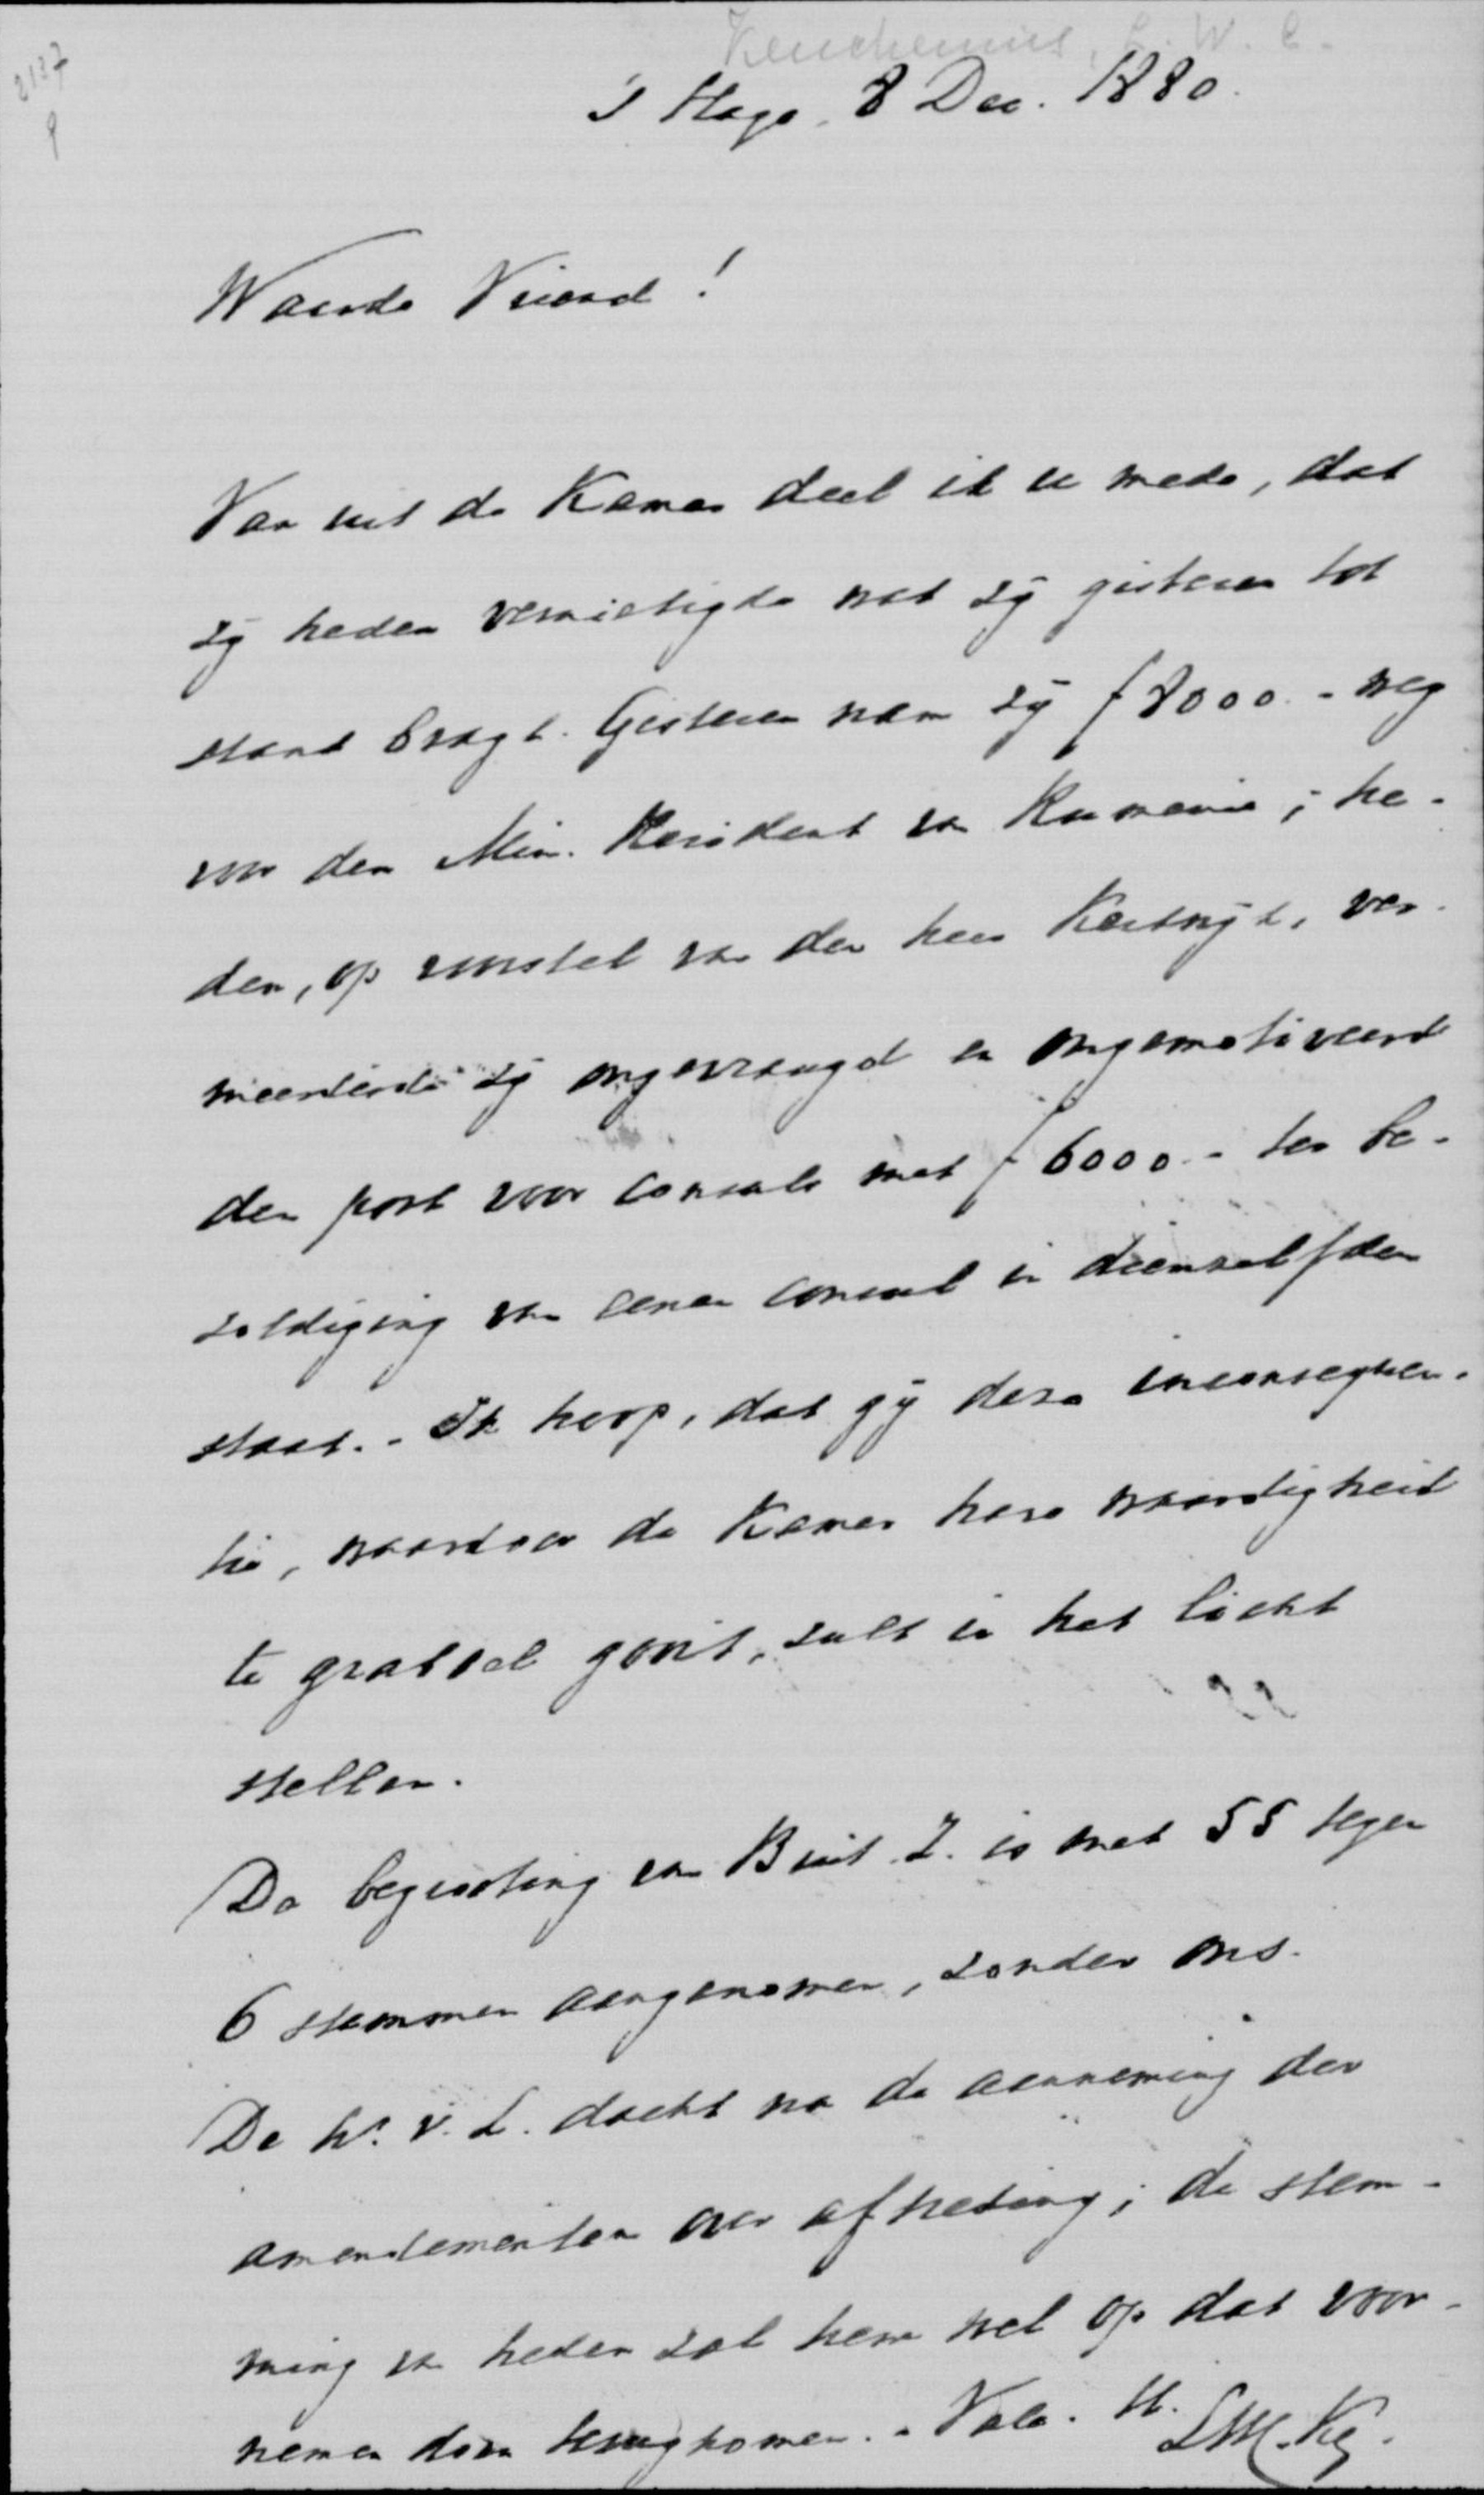 Keuchenius, L. W. C.
2137
9
's Hage, 8 Dec. 1880.
Waarde Vriend!
Van uit de Kamer deel ik u mede, dat
zij heden vernietigde wat zij gisteren tot
stand bragt. Gisteren nam zij f 8000.- weg
voor den Min. Resident in Rumenie; he-
den, op voorstel van den heer Kerkwijk, ver-
meerderde zij ongevraagd en ongemotiveerd
den post voor consuls met f 6000.- ter be-
zoldiging van eenen consul in dienzelfden
staat. - Ik hoop, dat gij deze inconsequen-
tie, waardoor de Kamer hare waardigheid
te grabbel gooit, zult in het licht
stellen.
De begrooting van Buit. Z. is met 55 tegen
6 stemmen aangenomen, zonder ons.
De hr. v. L. dacht na de aanneming der
amendementen over aftreding; de stem-
ming van heden zal hem wel op dat voor-
nemen doen terugkomen. - Vale. tt.
LWC. Ks.